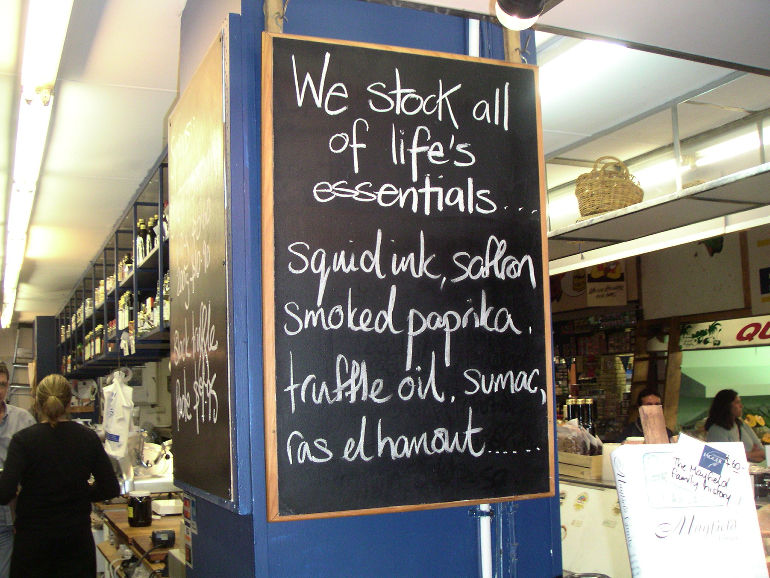 We stock all
of life's
essentials....
squid ink, saffron
smoked paprika.
truffle oil. sumac,
ras el hanout......
truffle
QU
The Mayfield
Family history
Mayfield